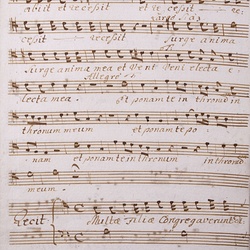 abiit et recessit et recessit et re
Largo
cessit recessit Surge anima
Surge anima mea et Veni Veni electa e
Allegro
lecta mea. et ponam te in thronum in
thronum meum et ponam te po
nam et ponam te in thronum in thronū
meum.
Recit Multæ Filiæ Congregaverunt